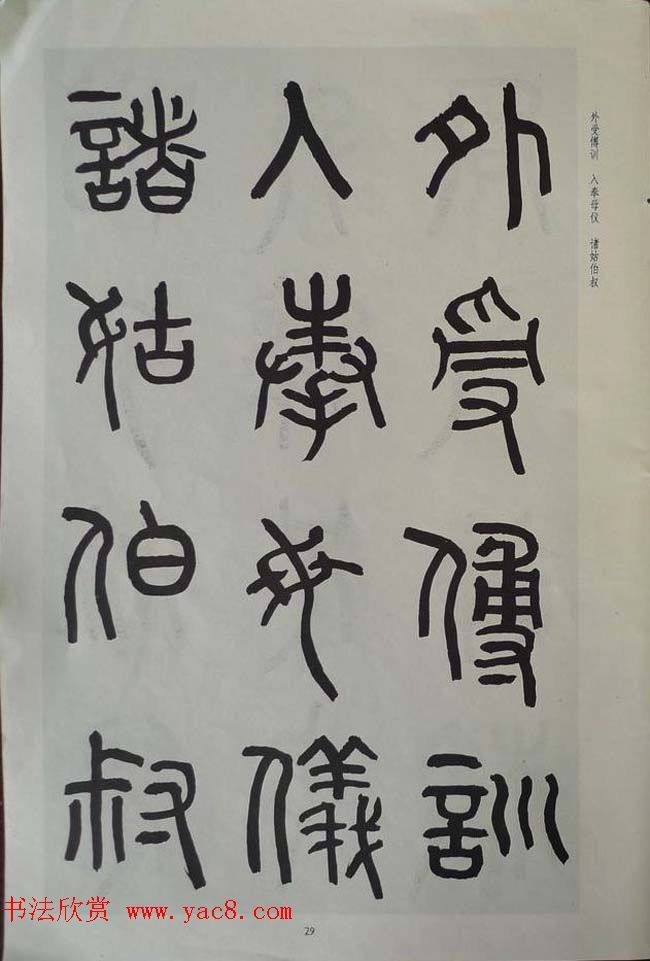 外受傅训　入奉母仪　诸姑伯叔
外受傅訓
入奉母儀
諸姑伯叔
书法欣赏 www.yac8.com
29